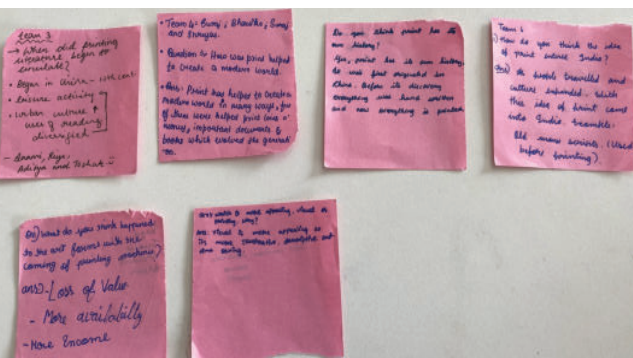 Team 3
→ When did printing
literature began to
circulate?
• Began in China - 16th cent.
• Leisure activity
• Urban culture ↑
uses of reading
diversified
- Saanvi,
Aditya and
• Team 4:
and Shreyas.
• Question 4: How was print helped
to create a modern world.
• Ans: Print has helped to create a
modern world in many ways, few
of them were helped print
money, important documents &
books which evolved the generati
on.
Do you think print has its
own history?
Yes, print has its own history,
it was first originated in
China. Before its discovery
everything was hand written
and now everything is printed.
Team 1
Q) How do you think the idea
of print entered India?
ans) As people travelled and
culture expanded. With
this idea of print came
into India
Old manu scripts. (Used
before printing).
Qs) What do you think happened
to the art forms with the
coming of printing machine?
ans) - Loss of Value
- More availability
- More Income
which is more appealing, visual or
why?
ans: visual is more appealing as
its more